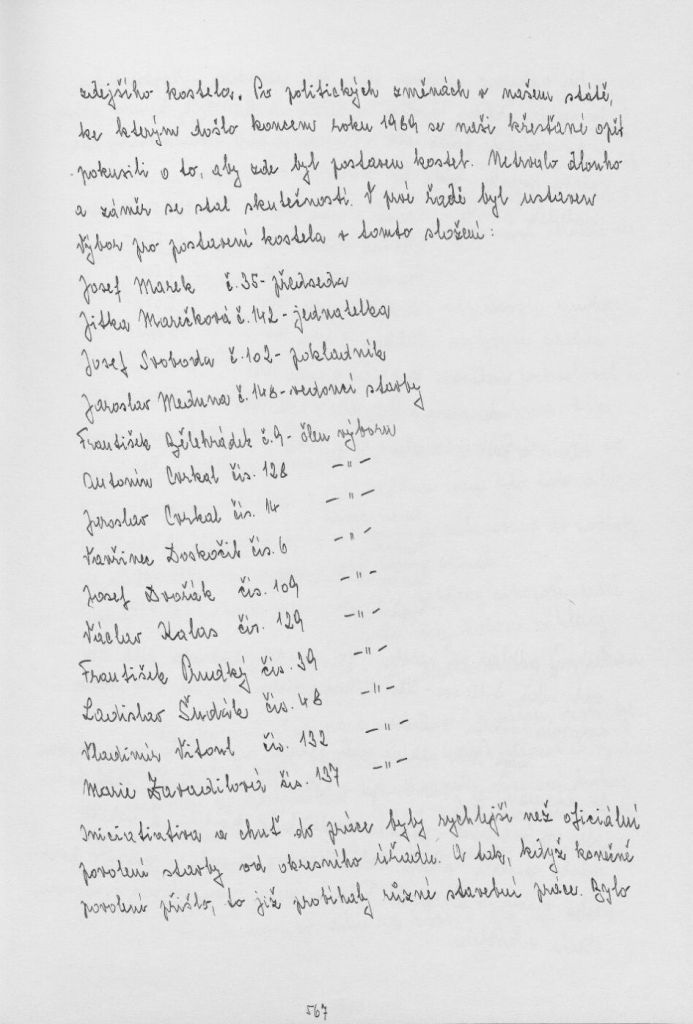 zdejšího kostela. Po politických změnách v našem státě,
ke kterým došlo koncem roku 1989 se naši křesťané opět
pokusili o to, aby zde byl postaven kostel. Netrvalo dlouho
a záměr se stal skutečností. V prvé řadě byl ustaven
výbor pro postavení kostela v tomto složení:
Josef Marek č. 35 - předseda
Jitka Marečková č. 142 - jednatelka
Josef Svoboda č. 102 - pokladník
Jaroslav Meduna č. 148 - vedoucí stavby
František Bělehrádek č. 9 - člen výboru
Antonín Cvrkal čís. 128 -"-
Jaroslav Cvrkal čís. 14 -"-
Vavřinec Doskočil čís. 6 -"-
Josef Dvořák čís. 109 -"-
Václav Kalas čís. 129 -"-
František Prudký čís. 39 -"-
Ladislav Švdák čís. 48 -"-
Vladimír Vitoul čís. 132 -"-
Marie Zavadilová čís. 137 -"-
Iniciatiativa a chuť do práce byly rychlejší než oficiální
povolení stavby od okresního úřadu. A tak, když konečné
povolení přišlo, to již probíhaly různé stavební práce. Bylo
567